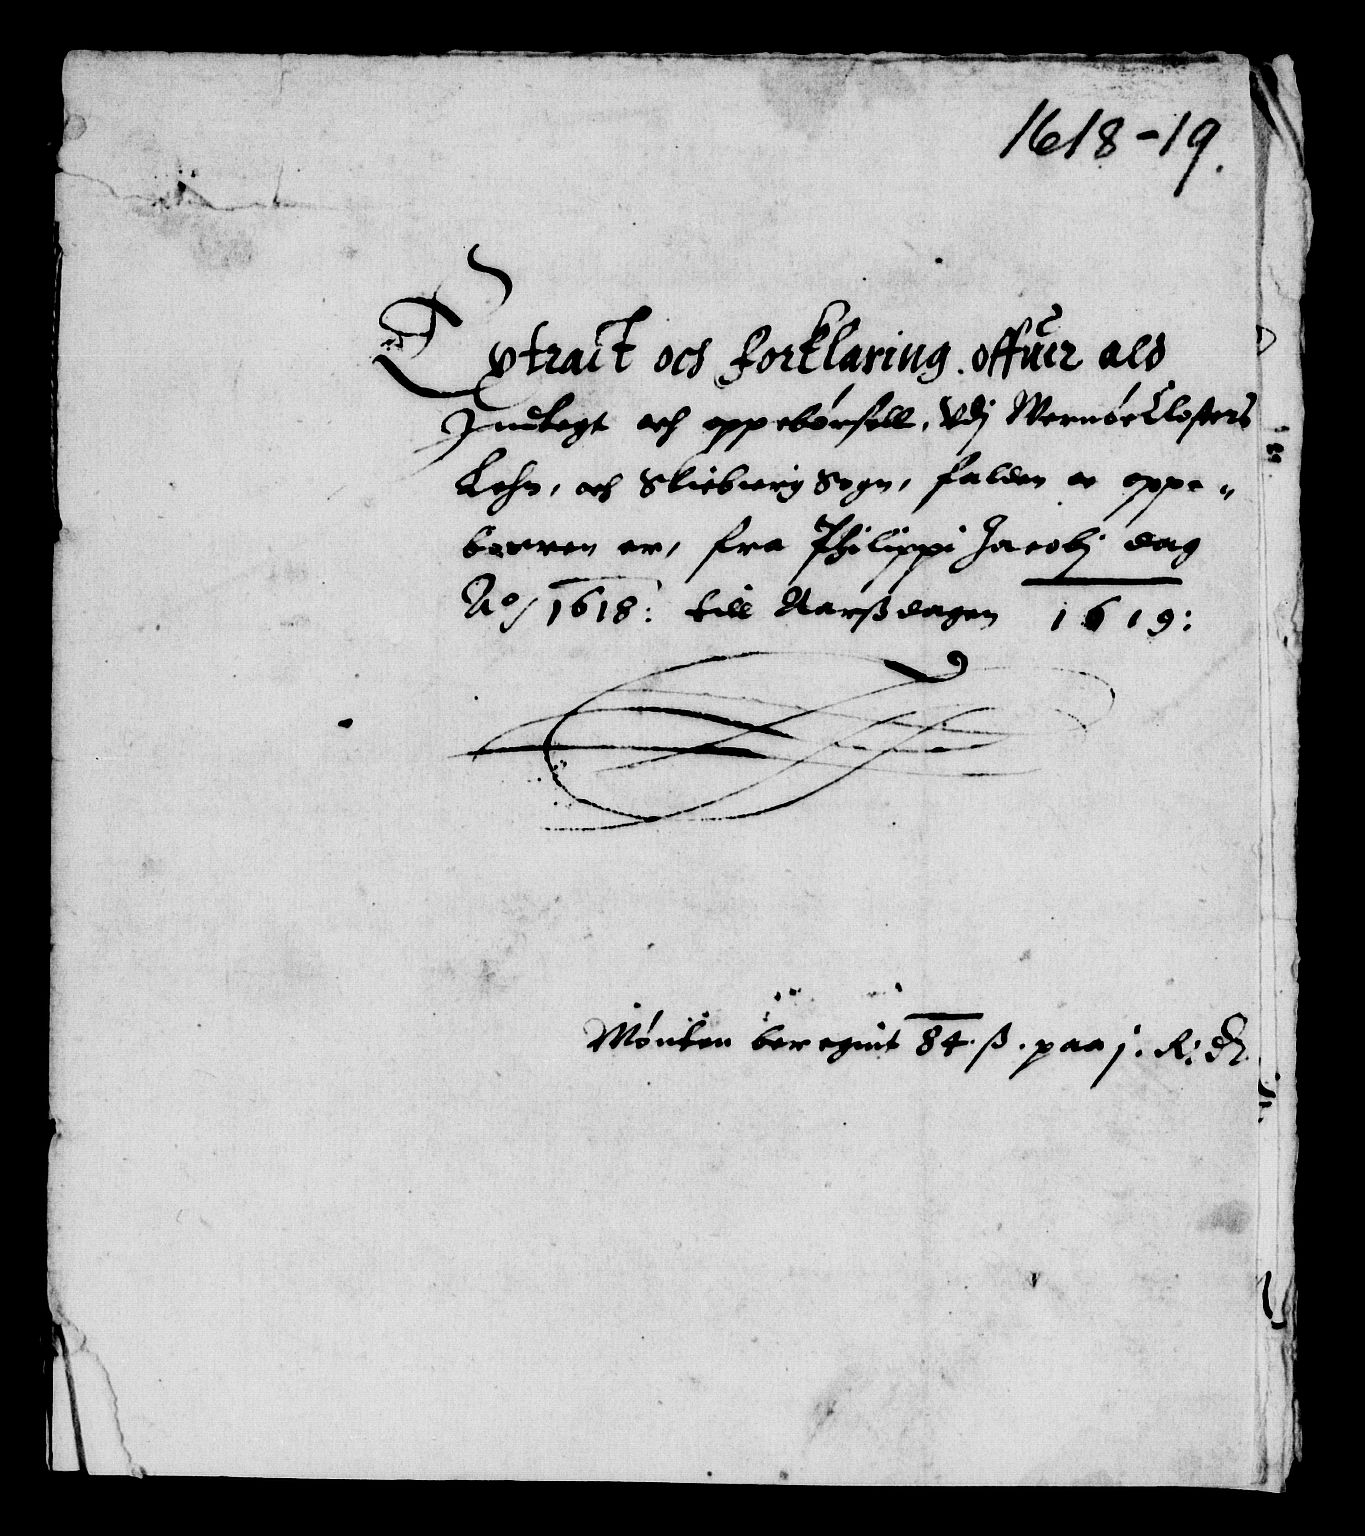 1618-19.
Extract och forklaring offuer ald
Indtegt och oppebørsell, Vdj Wernøe Closters
Lehn, och Skieberig Sogn, falden oc oppe„
borren er, fra Philippi Jacobj dag
Ao/ 1618: till Aarßdagen 1619:
Mønten beregnit 84 ß. paa j. R: dr